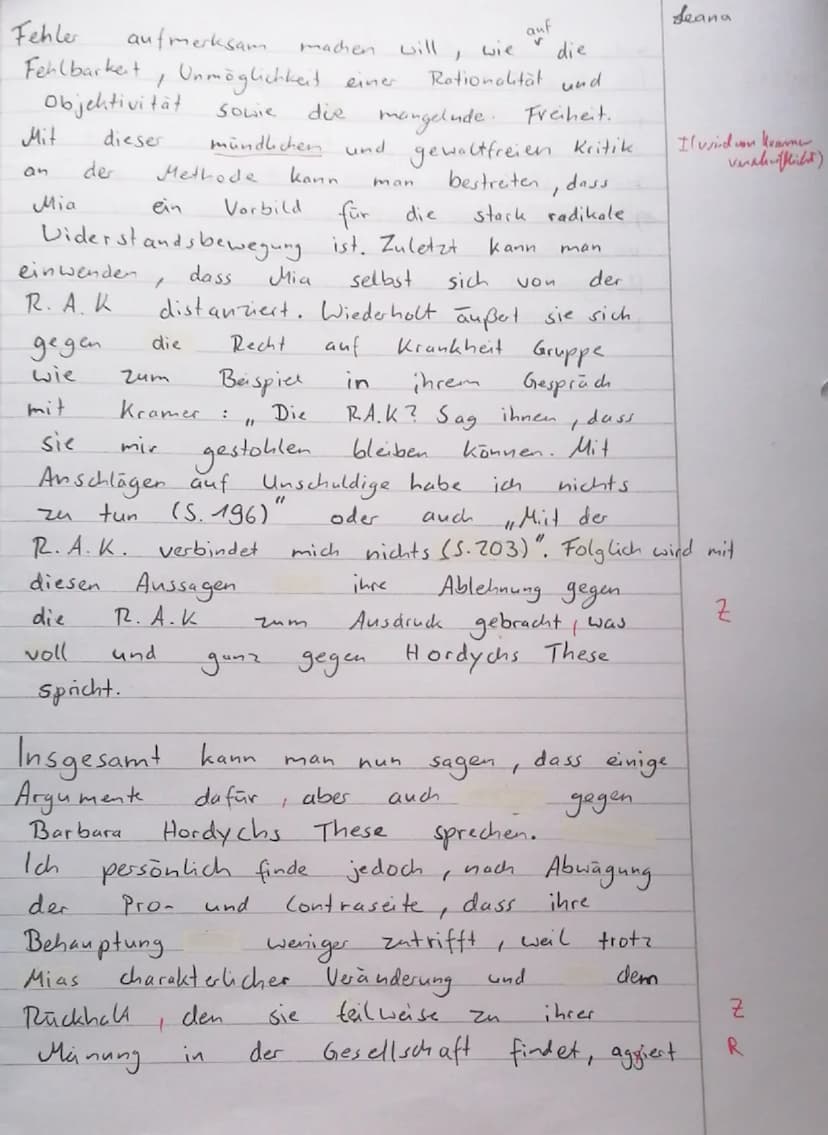 Leana
Fehler aufmerksam machen will, wie auf die
Fehlbarkeit, Unmöglichkeit einer Rationalität und
Objektivität sowie die mangelnde Freiheit.
Mit dieser mündlichen und gewaltfreien Kritik
an der Methode kann man bestreiten, dass
Mia ein Vorbild für die stark radikale
Widerstandsbewegung ist. Zuletzt kann man
einwenden, dass Mia selbst sich von der
R.A.K distanziert. Wiederholt äußert sie sich
gegen die Recht auf Krankheit Gruppe
wie zum Beispiel in ihrem Gespräch
mit Kramer: „Die R.A.K? Sag ihnen, dass
sie mir gestohlen bleiben können. Mit
Anschlägen auf Unschuldige habe ich nichts
zu tun (S. 196)" oder auch „Mit der
R.A.K. verbindet mich nichts (S. 203)". Folglich wird mit
diesen Aussagen ihre Ablehnung gegen
die R.A.K zum Ausdruck gebracht, was
Z
voll und ganz gegen Hordychs These
spricht.
Insgesamt kann man nun sagen, dass einige
Argumente dafür, aber auch gegen
Barbara Hordychs These sprechen.
Ich persönlich finde jedoch, nach Abwägung
der Pro- und Contraseite, dass ihre
Behauptung weniger zutrifft, weil trotz
Mias charakterlicher Veränderung und dem
Rückhalt, den sie teilweise zu ihrer
Z
Meinung in der Gesellschaft findet, aggiert
R